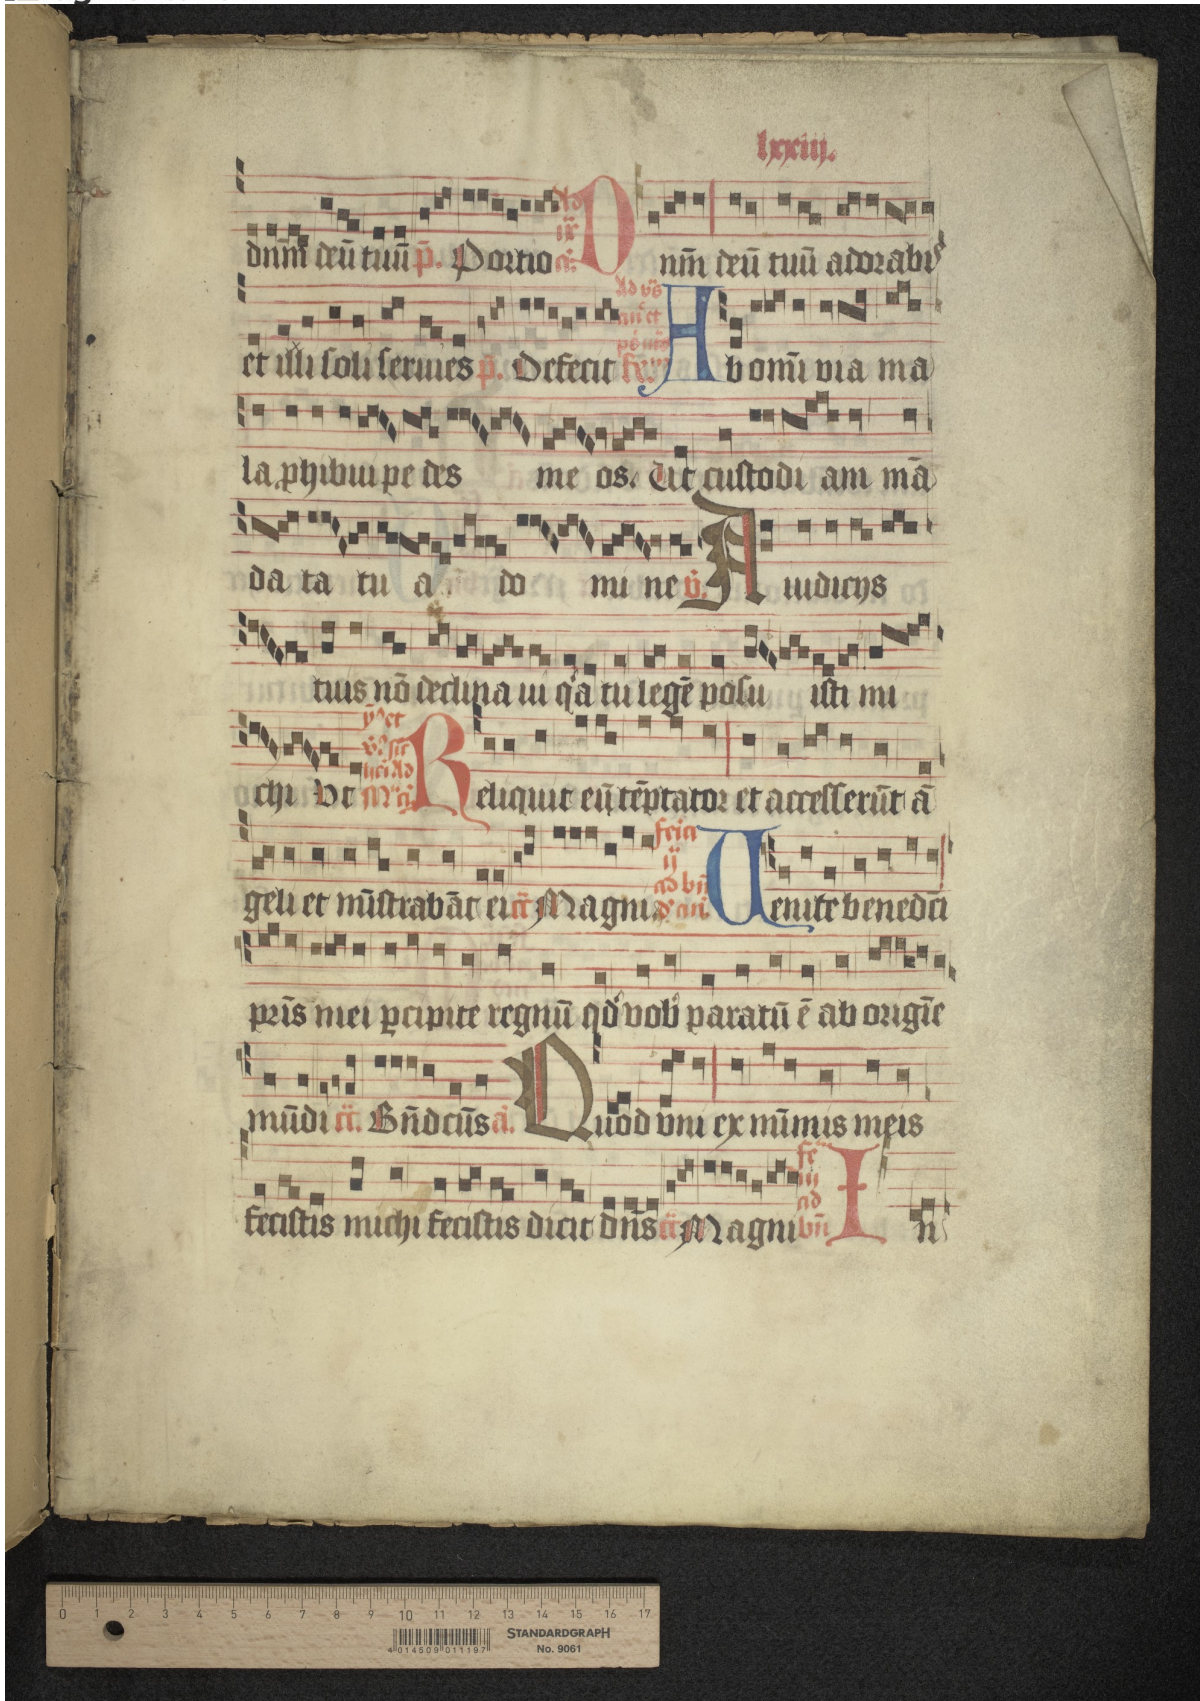 lxxiij.
dnm̄ deū tuū p̄. Portio añ. Dnm̄ deū tuū adorabis
et illi soli seruies p̄. Defecit Ab om̄i via ma
la phibui pe des me os. Ut custodi am mā
da ta tu a do mi ne v̄. A iudicijs
tuis nō declina ui q̇a tu legē posu isti mi
chi Vt Reliquit eū tēptator et accesserūt ā
geli et mīstrabāt ei c̄r Magni feria ij ad bn̄ Uenite benedc̄i
pr̄is mei pcipite regnū qd vob paratū ē ab origīe
mūdi c̄r. Bn̄dcūs a. Quod vni ex mīmis meis
fecistis michi fecistis dicit dn̄s c̄r Magni fe iij ad bn̄ In
0 1 2 3 4 5 6 7 8 9 10 11 12 13 14 15 16 17
4 014509 011197
STANDARDGRAPH
No. 9061